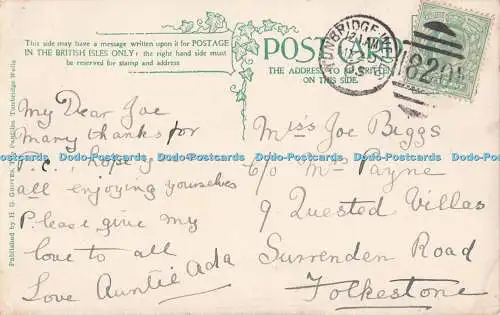 This side may have a message written upon it for POSTAGE
IN THE BRITISH ISLES ONLY: the right hand side must
be reserved for stamp and address
POST CARD
THE ADDRESS TO BE WRITTEN
ON THIS SIDE.
TUNBRIDGE WELLS
820
My Dear Joe
Many thanks for
P.C, hoping
all enjoying yourselves
Please give my
love to all
Love Auntie Ada
Miss Joe Biggs
c/o Mrs Payne
9 Quested Villas
Surrenden Road
Folkestone
Published by H. G. Groves, The Pantiles, Tunbridge Wells
Dodo-Postcards Dodo-Postcards Dodo-Postcards Dodo-Postcards Dodo-Postcards Dodo-Postcards